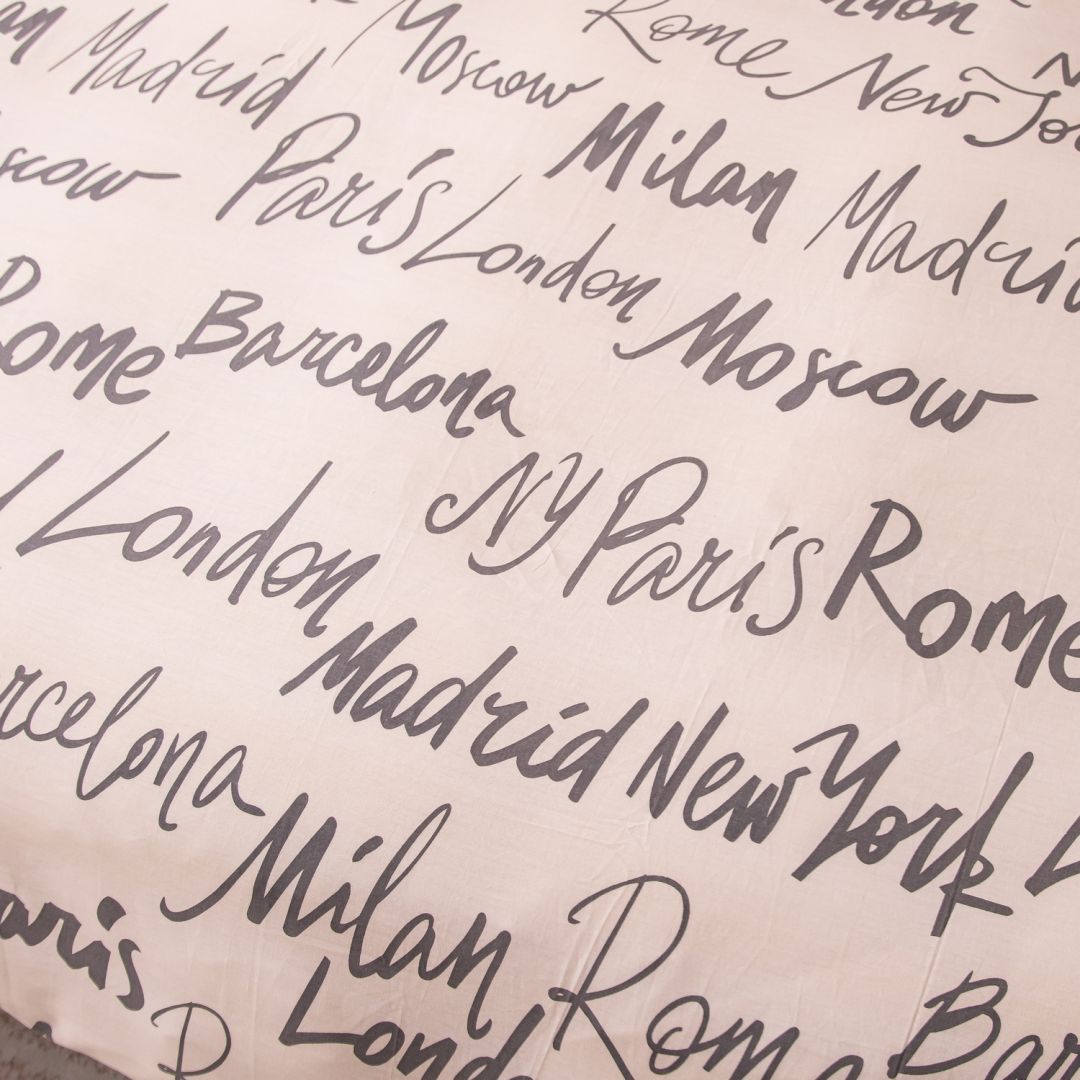 Madrid Moscow Rome New Yo
Paris London Milan Madrid
Rome Barcelona Moscow
London NY Paris Rome
Barcelona Madrid New York
Paris Milan Rome Bar
Lond